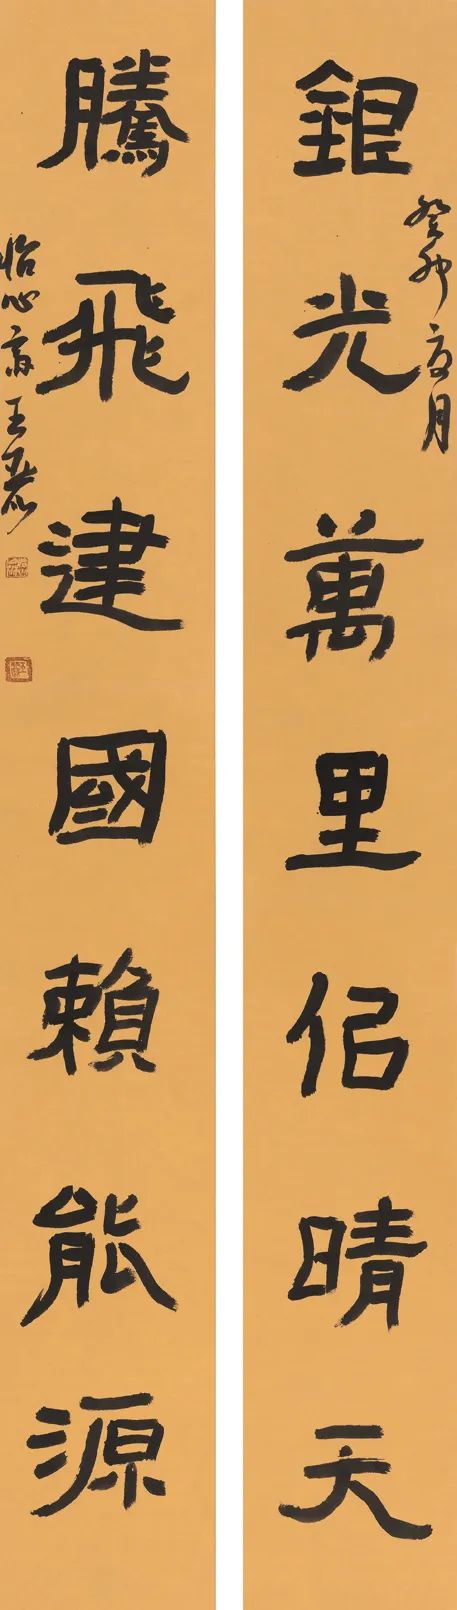 銀光萬里侣晴天
癸卯夏月
騰飛建國賴能源
怡心齋王磊